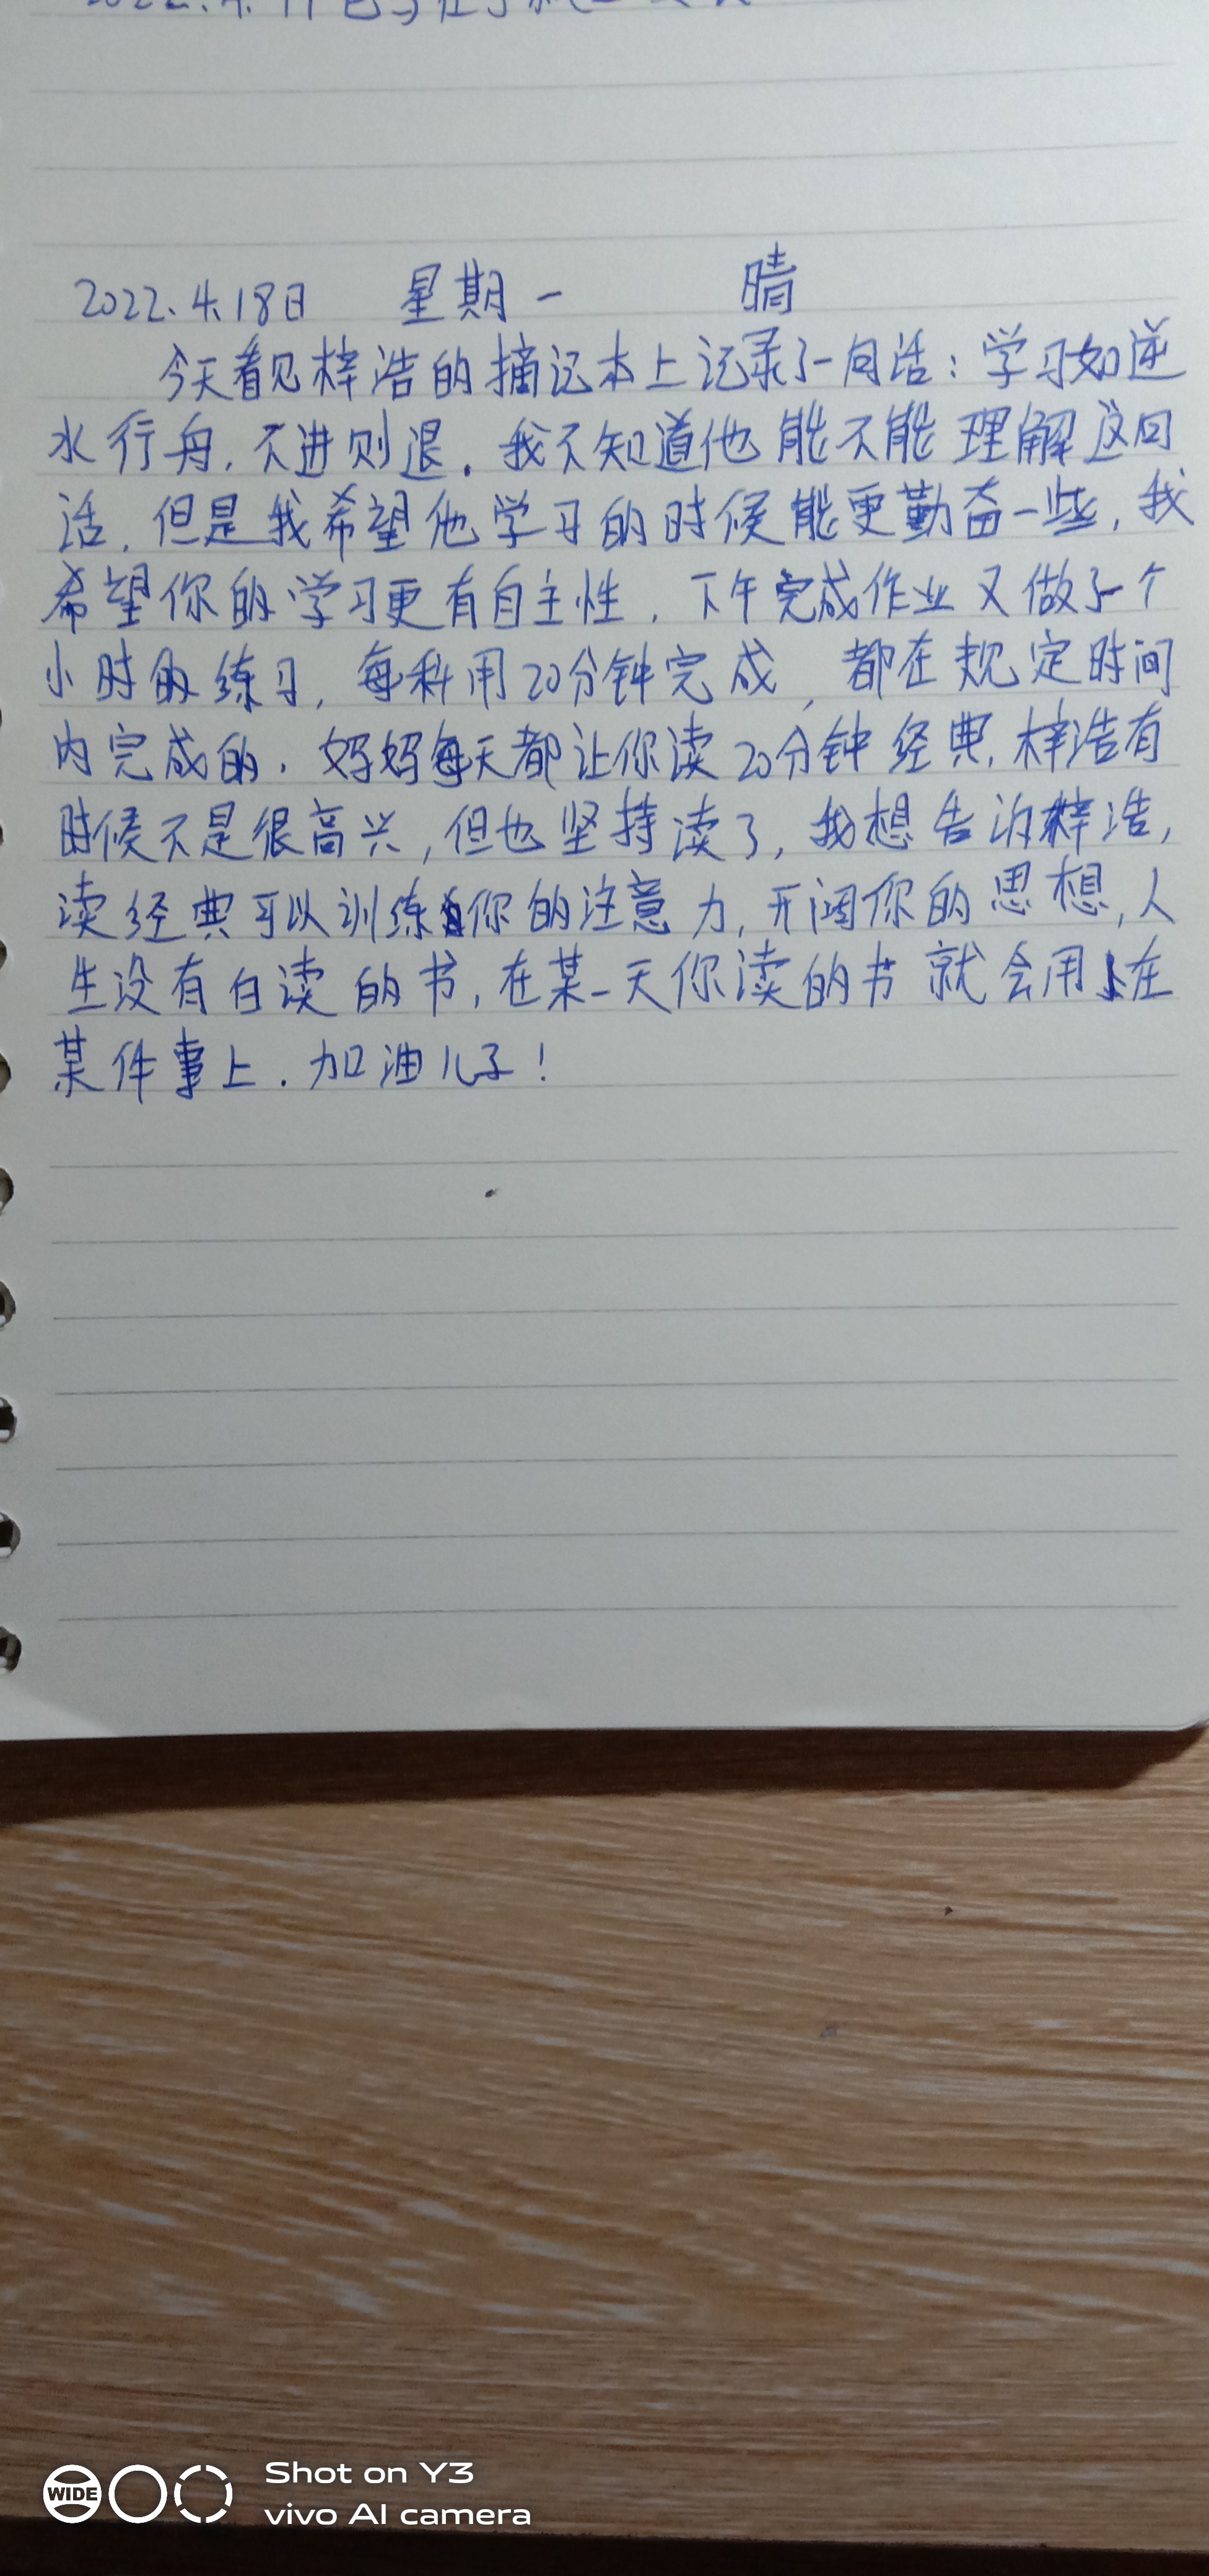 2022.4.18日 星期一 晴
今天看见梓浩的摘记本上记录了一句话：学习如逆
水行舟，不进则退。我不知道他能不能理解这句
话，但是我希望他学习的时候能更勤奋一些，我
希望你的学习更有自主性，下午完成作业又做了一个
小时的练习，每科用20分钟完成，都在规定时间
内完成的。妈妈每天都让你读20分钟经典，梓浩有
时候不是很高兴，但也坚持读了，我想告诉梓浩，
读经典可以训练你的注意力，开阔你的思想，人
生没有白读的书，在某一天你读的书就会用在
某件事上。加油儿子！
WIDE
Shot on Y3
vivo AI camera